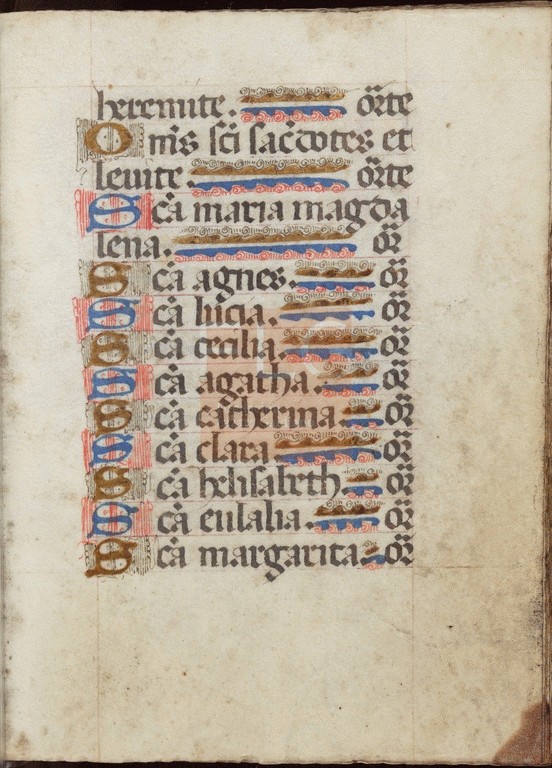 heremite. or̃te
Om̃s sc̃i sac̃dotes et
leuite or̃te
Sc̃a maria magda
lena. or̃
Sc̃a agnes. or̃
Sc̃a lucia. or̃
Sc̃a cecilia. or̃
Sc̃a agatha. or̃
Sc̃a cat̃herina or̃
Sc̃a clara or̃
Sc̃a helisabeth or̃
Sc̃a eulalia. or̃
Sc̃a margarita. or̃